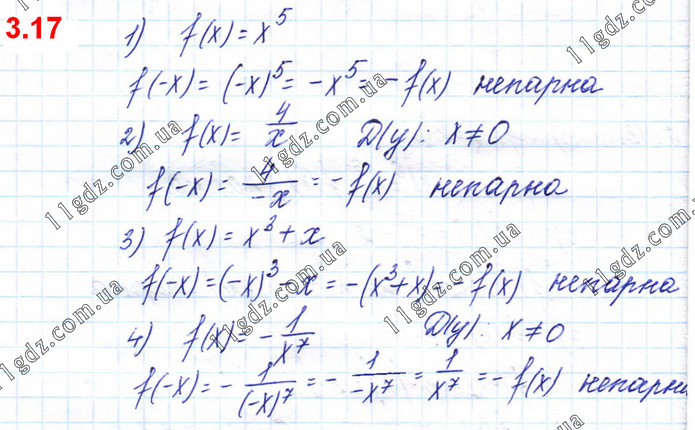 3.17
1) f(x) = x^5
f(-x) = (-x)^5 = -x^5 = -f(x) непарна
2) f(x) = 4/x D(y): x ≠ 0
f(-x) = 4/-x = -f(x) непарна
3) f(x) = x^3 + x
f(-x) = (-x)^3 - x = -(x^3+x) = -f(x) непарна
4) f(x) = -1/x^7 D(y): x ≠ 0
f(-x) = -1/(-x)^7 = -1/-x^7 = 1/x^7 = -f(x) непарна
11gdz.com.ua
11gdz.com.ua
11gdz.com.ua
11gdz.com.ua
11gdz.com.ua
11gdz.com.ua